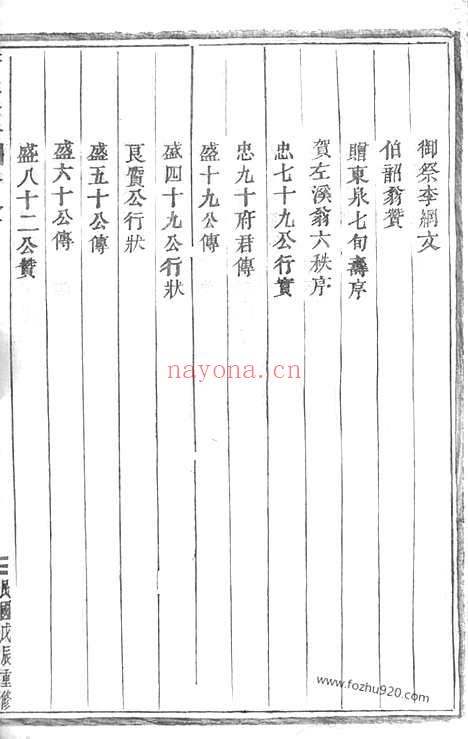 御祭李綱文
伯韶翁贊
贈東泉七旬壽序
賀左溪翁六秩序
忠七十九公行實
忠九十府君傳
盛十九公傳
盛四十九公行狀
良質公行狀
盛五十公傳
盛六十公傳
盛八十二公贊
民國戊辰重修
nayona.cn
www.fozhu920.com